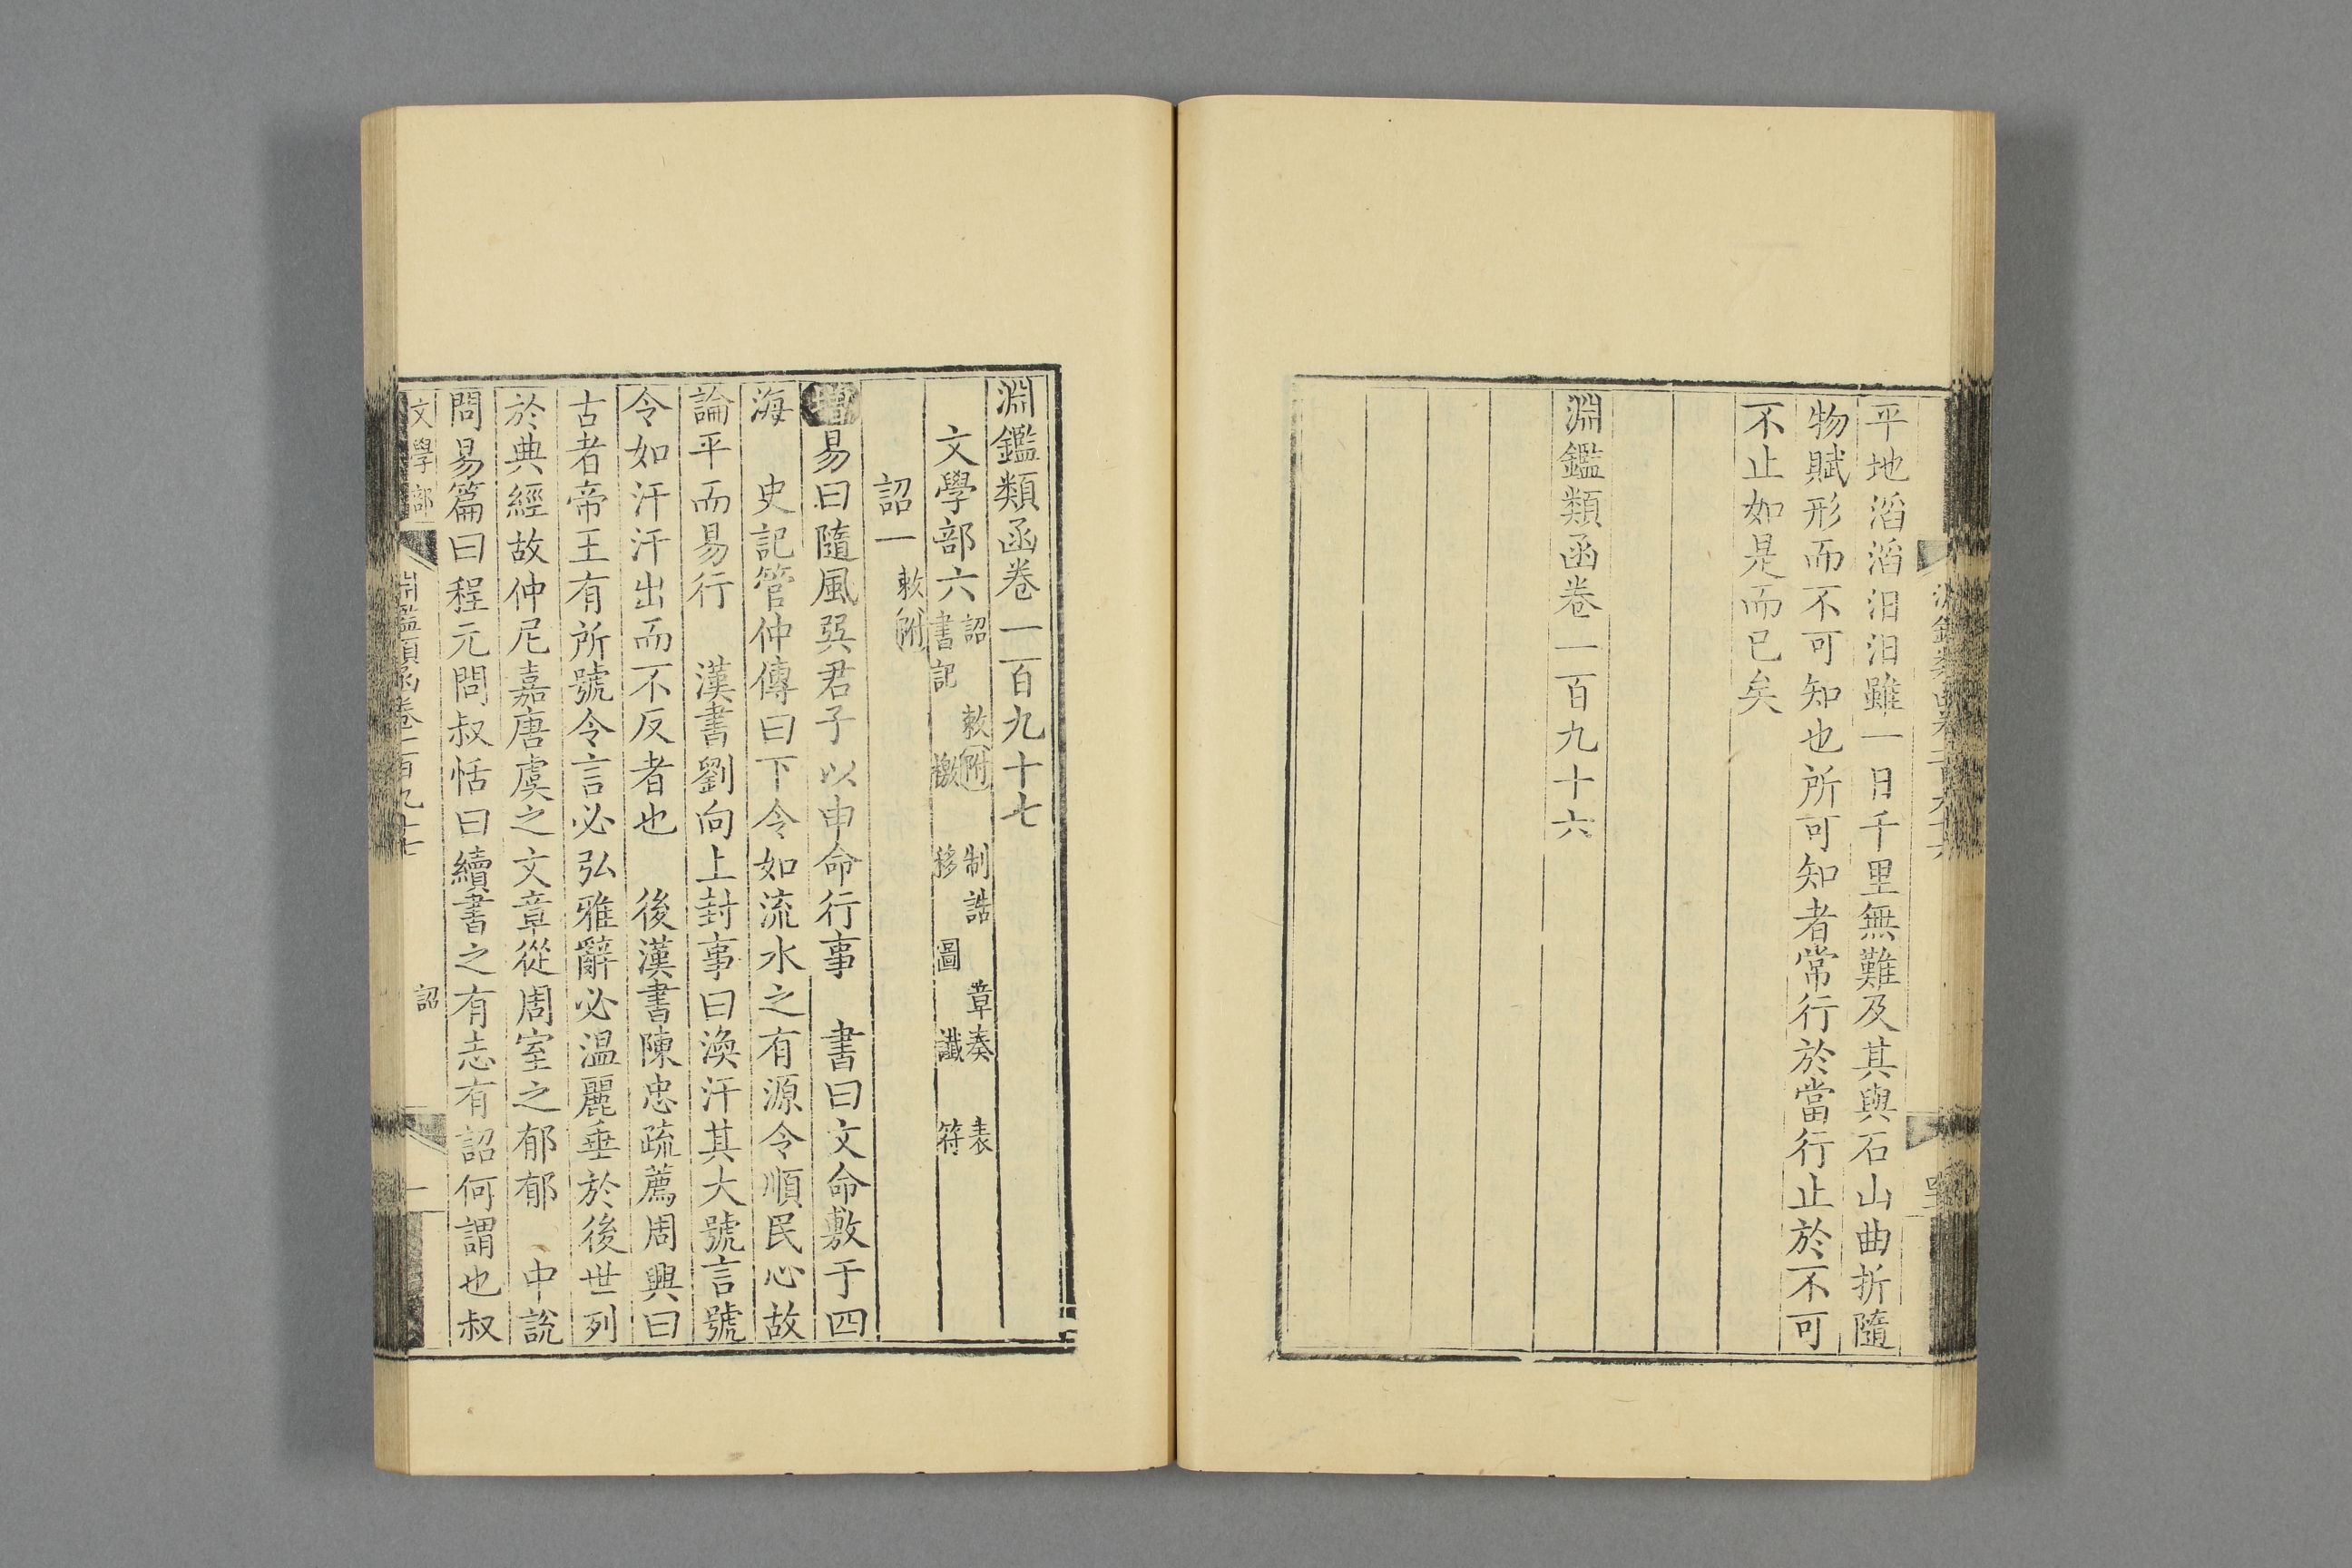 平地滔滔汩汩雖一日千里無難及其與石山曲折隨
物賦形而不可知也所可知者常行於當行止於不可
不止如是而已矣
淵鑑類函卷一百九十六
淵鑑類函卷一百九十七
文學部六詔 敕附 制誥 章奏 表
書記 檄 移 圖 讖 符
詔一敕附
增易曰隨風巽君子以申命行事 書曰文命敷于四
海 史記管仲傳曰下令如流水之有源令順民心故
論平而易行 漢書劉向上封事曰渙汗其大號言號
令如汗汗出而不反者也 後漢書陳忠疏薦周興曰
古者帝王有所號令言必弘雅辭必溫麗垂於後世列
於典經故仲尼嘉唐虞之文章從周室之郁郁 中說
問易篇曰程元問叔恬曰續書之有志有詔何謂也叔
文學部 淵鑑類函卷一百九十七 詔 一